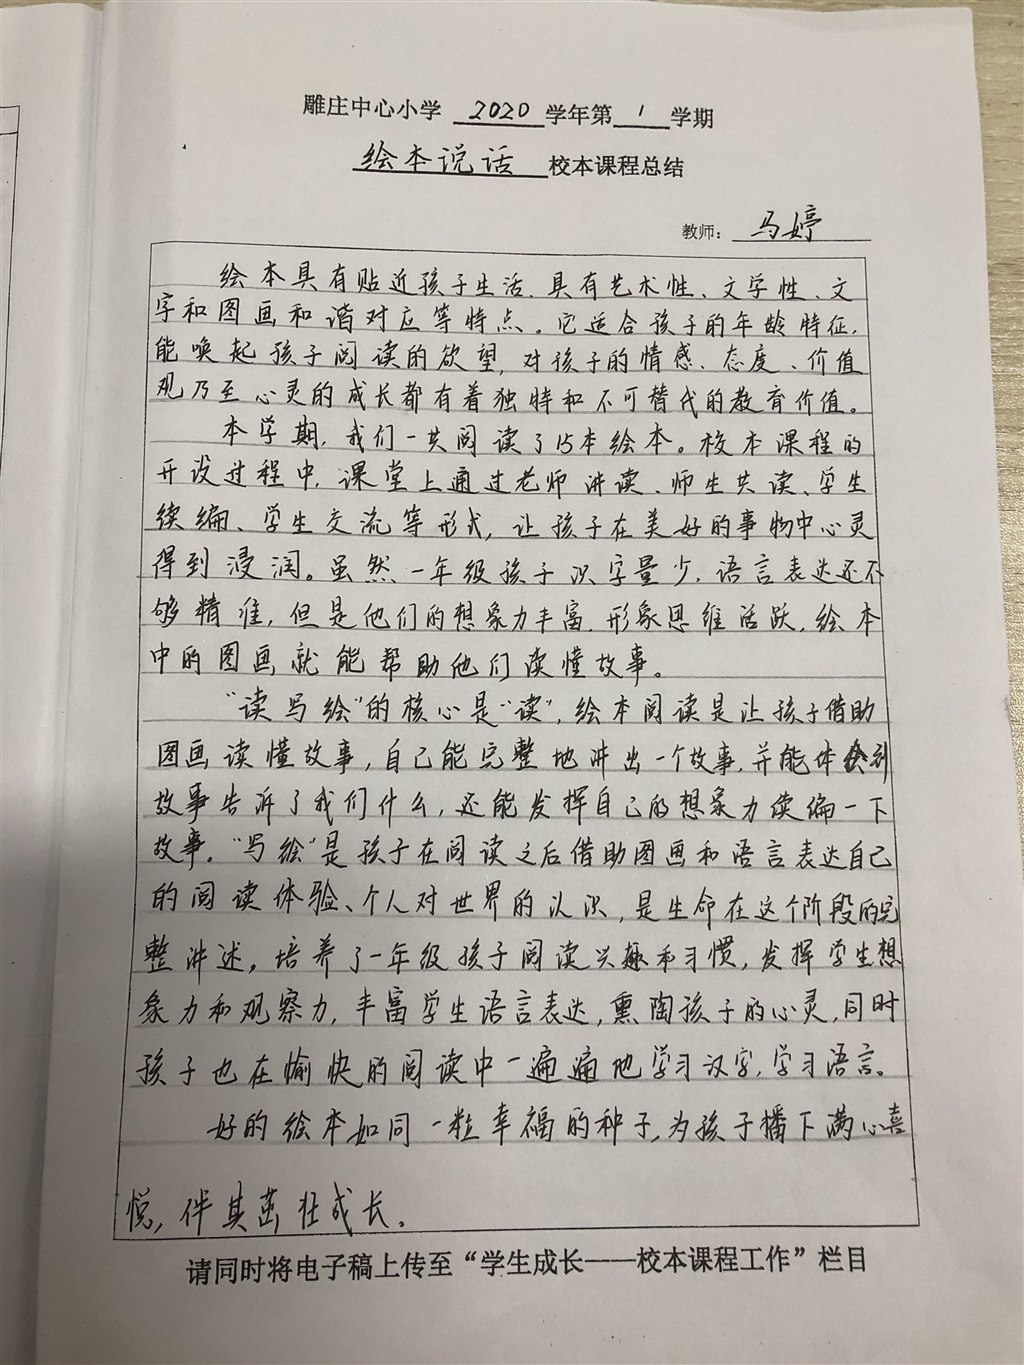 雕庄中心小学 2020 学年第 1 学期
绘本说话 校本课程总结
教师：马婷
绘本具有贴近孩子生活、具有艺术性、文学性、文
字和图画和谐对应等特点。它适合孩子的年龄特征，
能唤起孩子阅读的欲望，对孩子的情感、态度、价值
观乃至心灵的成长都有着独特和不可替代的教育价值。
本学期，我们一共阅读了15本绘本。校本课程的
开设过程中，课堂上通过老师讲读、师生共读、学生
续编、学生交流等形式，让孩子在美好的事物中心灵
得到浸润。虽然一年级孩子识字量少，语言表达还不
够精准，但是他们的想象力丰富，形象思维活跃，绘本
中的图画就能帮助他们读懂故事。
“读写绘”的核心是“读”，绘本阅读是让孩子借助
图画读懂故事，自己能完整地讲出一个故事，并能体会到
故事告诉了我们什么，还能发挥自己的想象力续编一下
故事。“写绘”是孩子在阅读之后借助图画和语言表达自己
的阅读体验、个人对世界的认识，是生命在这个阶段的完
整讲述。培养了一年级孩子阅读兴趣和习惯，发挥学生想
象力和观察力，丰富学生语言表达，熏陶孩子的心灵，同时
孩子也在愉快的阅读中一遍遍地学习汉字，学习语言。
好的绘本如同一粒幸福的种子，为孩子播下满心喜
悦，伴其茁壮成长。
请同时将电子稿上传至“学生成长——校本课程工作”栏目